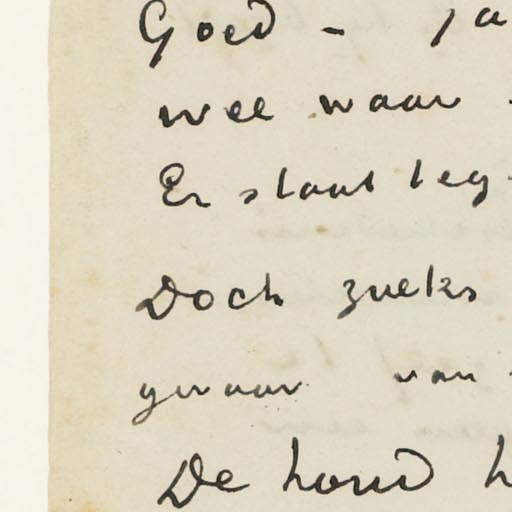 Goed - ja
wee waar
Er staat teg
Doch zueks
gwaar van
De houd h